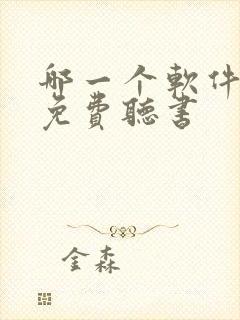 哪一个軟件
免費聽書
金森